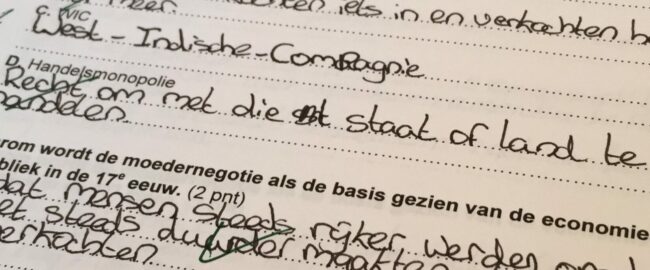 meer. iets in en verkochten
C. WIC
West-Indische-Compagnie
D. Handelsmonopolie
Recht om met die staat of land te
handelen.
rom wordt de moedernegotie als de basis gezien van de economie
bliek in de 17e eeuw. (2 pnt)
dat mensen steeds rijker werden
et steeds duurder maakten
erkochten